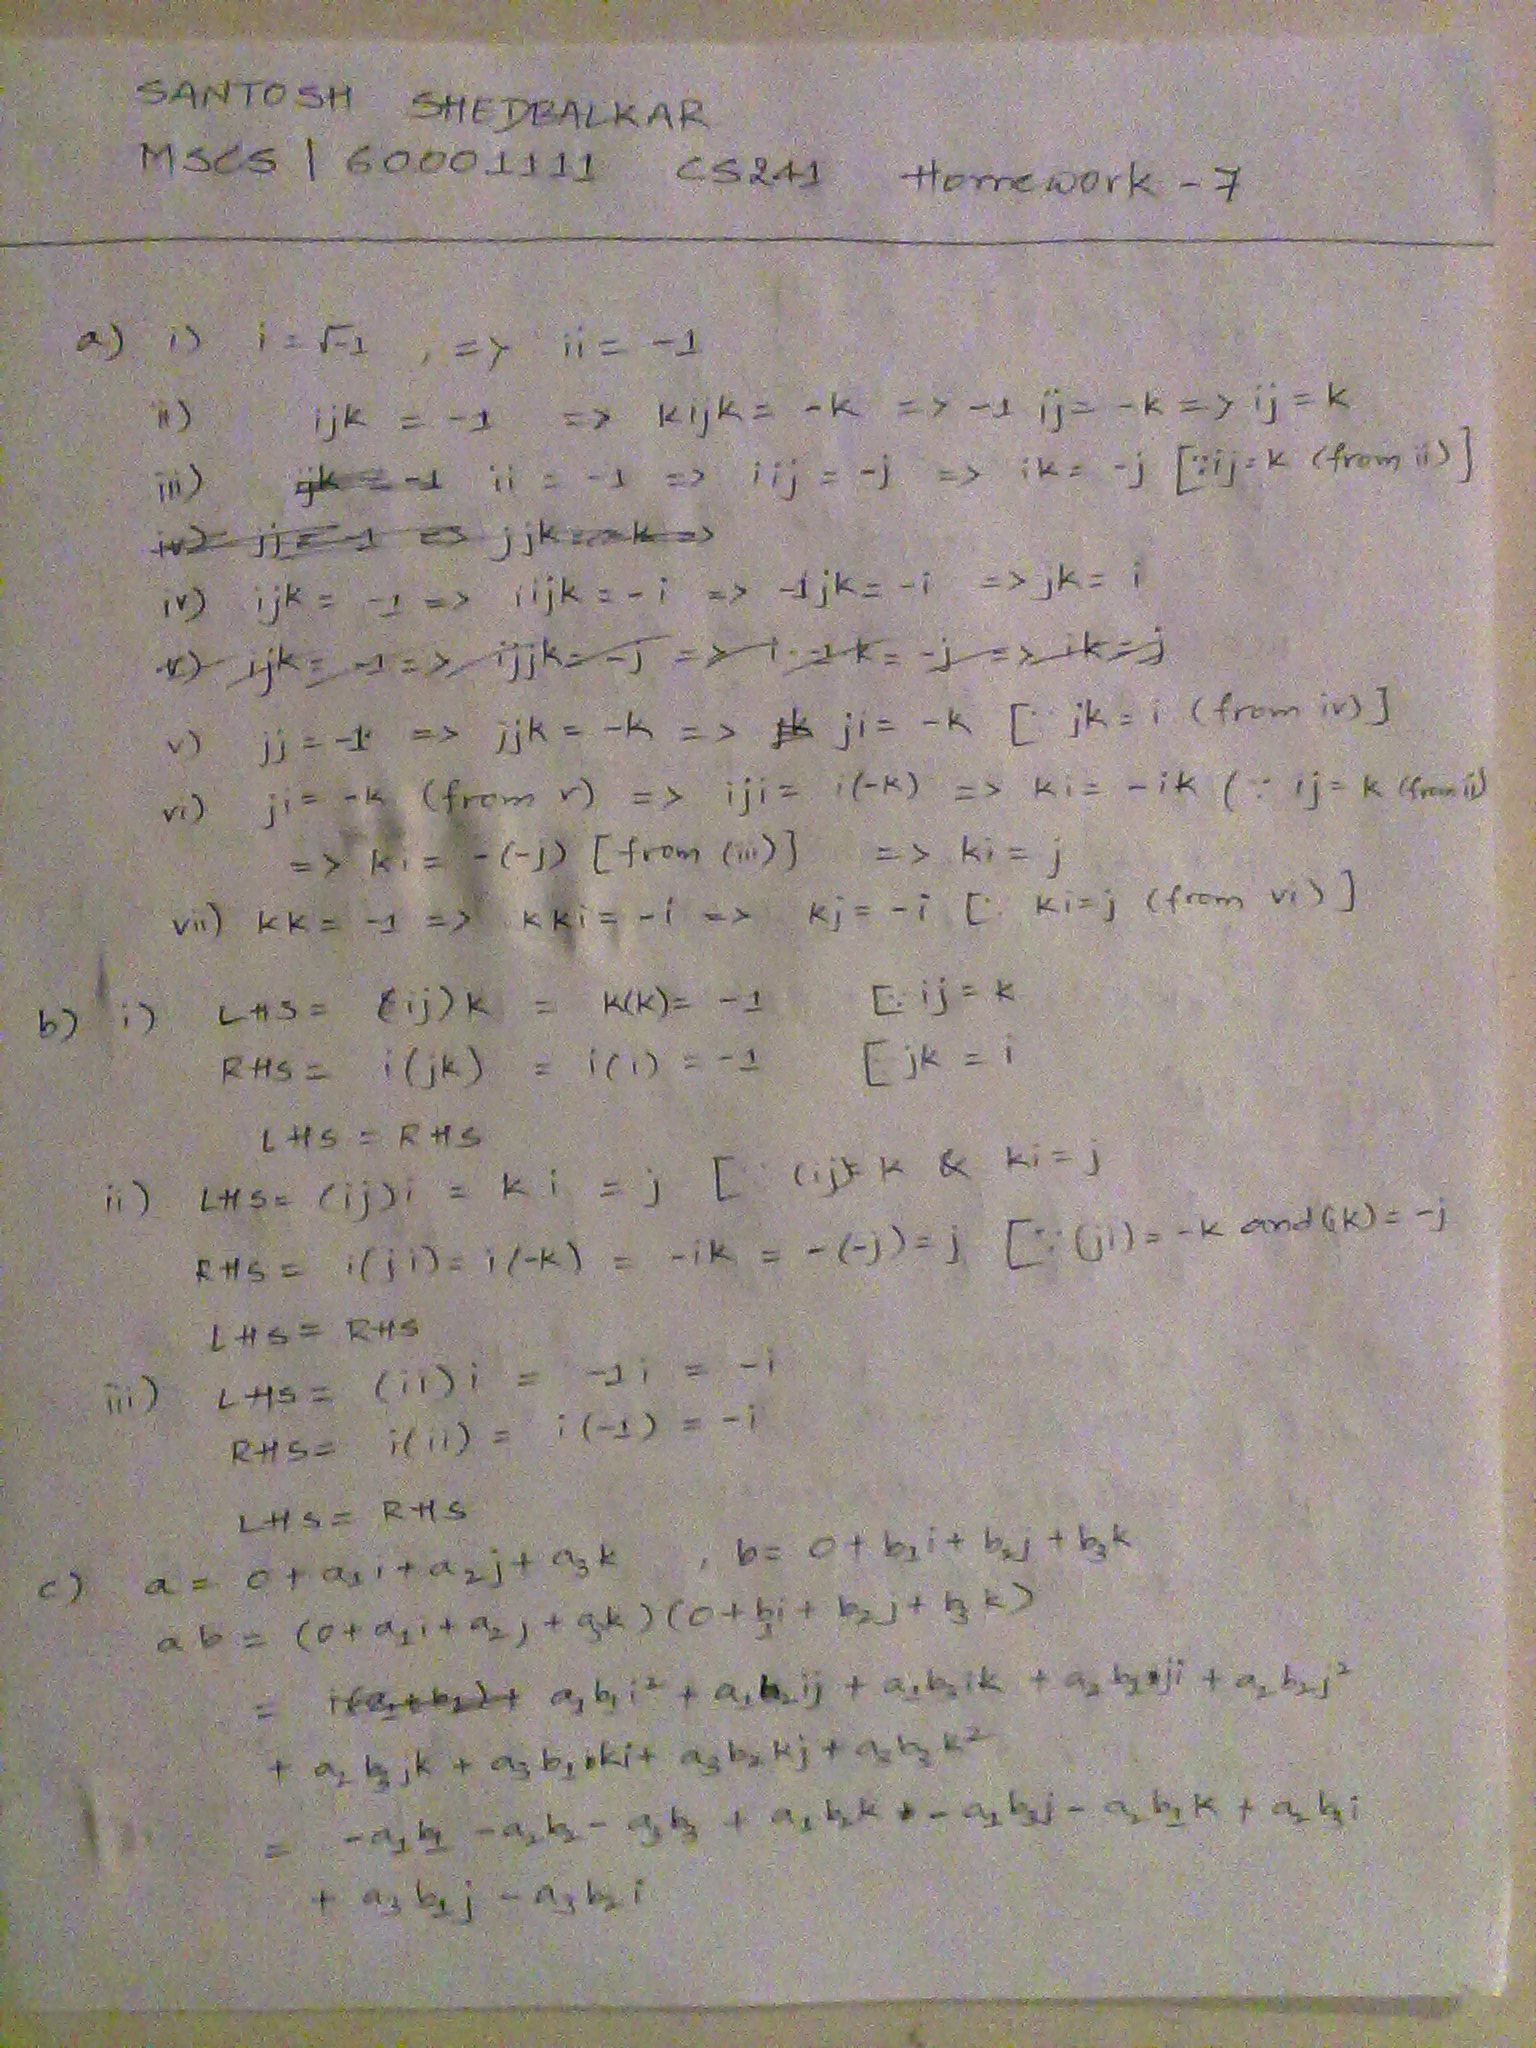 SANTOSH SHEDBALKAR
MSCS | 60001111 CS241 Homework - 7
a) i) i = √-1 , => ii = -1
ii) ijk = -1 => kijk = -k => -1 ij = -k => ij = k
iii) ijk = -1 ii = -1 => iij = -j => ik = -j [∵ ij = k (from ii)]
iv) jj = -1 => jjk = -k =>
iv) ijk = -1 => iijk = -i => -1jk = -i => jk = i
v) ijk = -1 => ijjk = -j => i . -1k = -j => ik = j
v) jj = -1 => jjk = -k => ji = -k [∵ jk = i (from iv)]
vi) ji = -k (from v) => iji = i(-k) => ki = -ik (∵ ij = k (from ii)
=> ki = -(-j) [from (iii)] => ki = j
vii) kk = -1 => kki = -i => kj = -i [∵ ki = j (from vi)]
b) i) LHS = (ij)k = k(k) = -1 [∵ ij = k
RHS = i(jk) = i(i) = -1 [∵ jk = i
LHS = RHS
ii) LHS = (ij)i = ki = j [∵ (ij) = k & ki = j
RHS = i(ji) = i(-k) = -ik = -(-j) = j [∵ (ji) = -k and (ik) = -j
LHS = RHS
iii) LHS = (ii)i = -1i = -i
RHS = i(ii) = i(-1) = -i
LHS = RHS
c) a = 0 + a₁i + a₂j + a₃k , b = 0 + b₁i + b₂j + b₃k
ab = (0 + a₁i + a₂j + a₃k)(0 + b₁i + b₂j + b₃k)
= i(a₁+b₁)+ a₁b₁i² + a₁b₂ij + a₁b₃ik + a₂b₁ji + a₂b₂j²
+ a₂b₃jk + a₃b₁ki + a₃b₂kj + a₃b₃k²
= -a₁b₁ - a₂b₂ - a₃b₃ + a₁b₂k - a₁b₃j - a₂b₁k + a₂b₃i
+ a₃b₁j - a₃b₂i